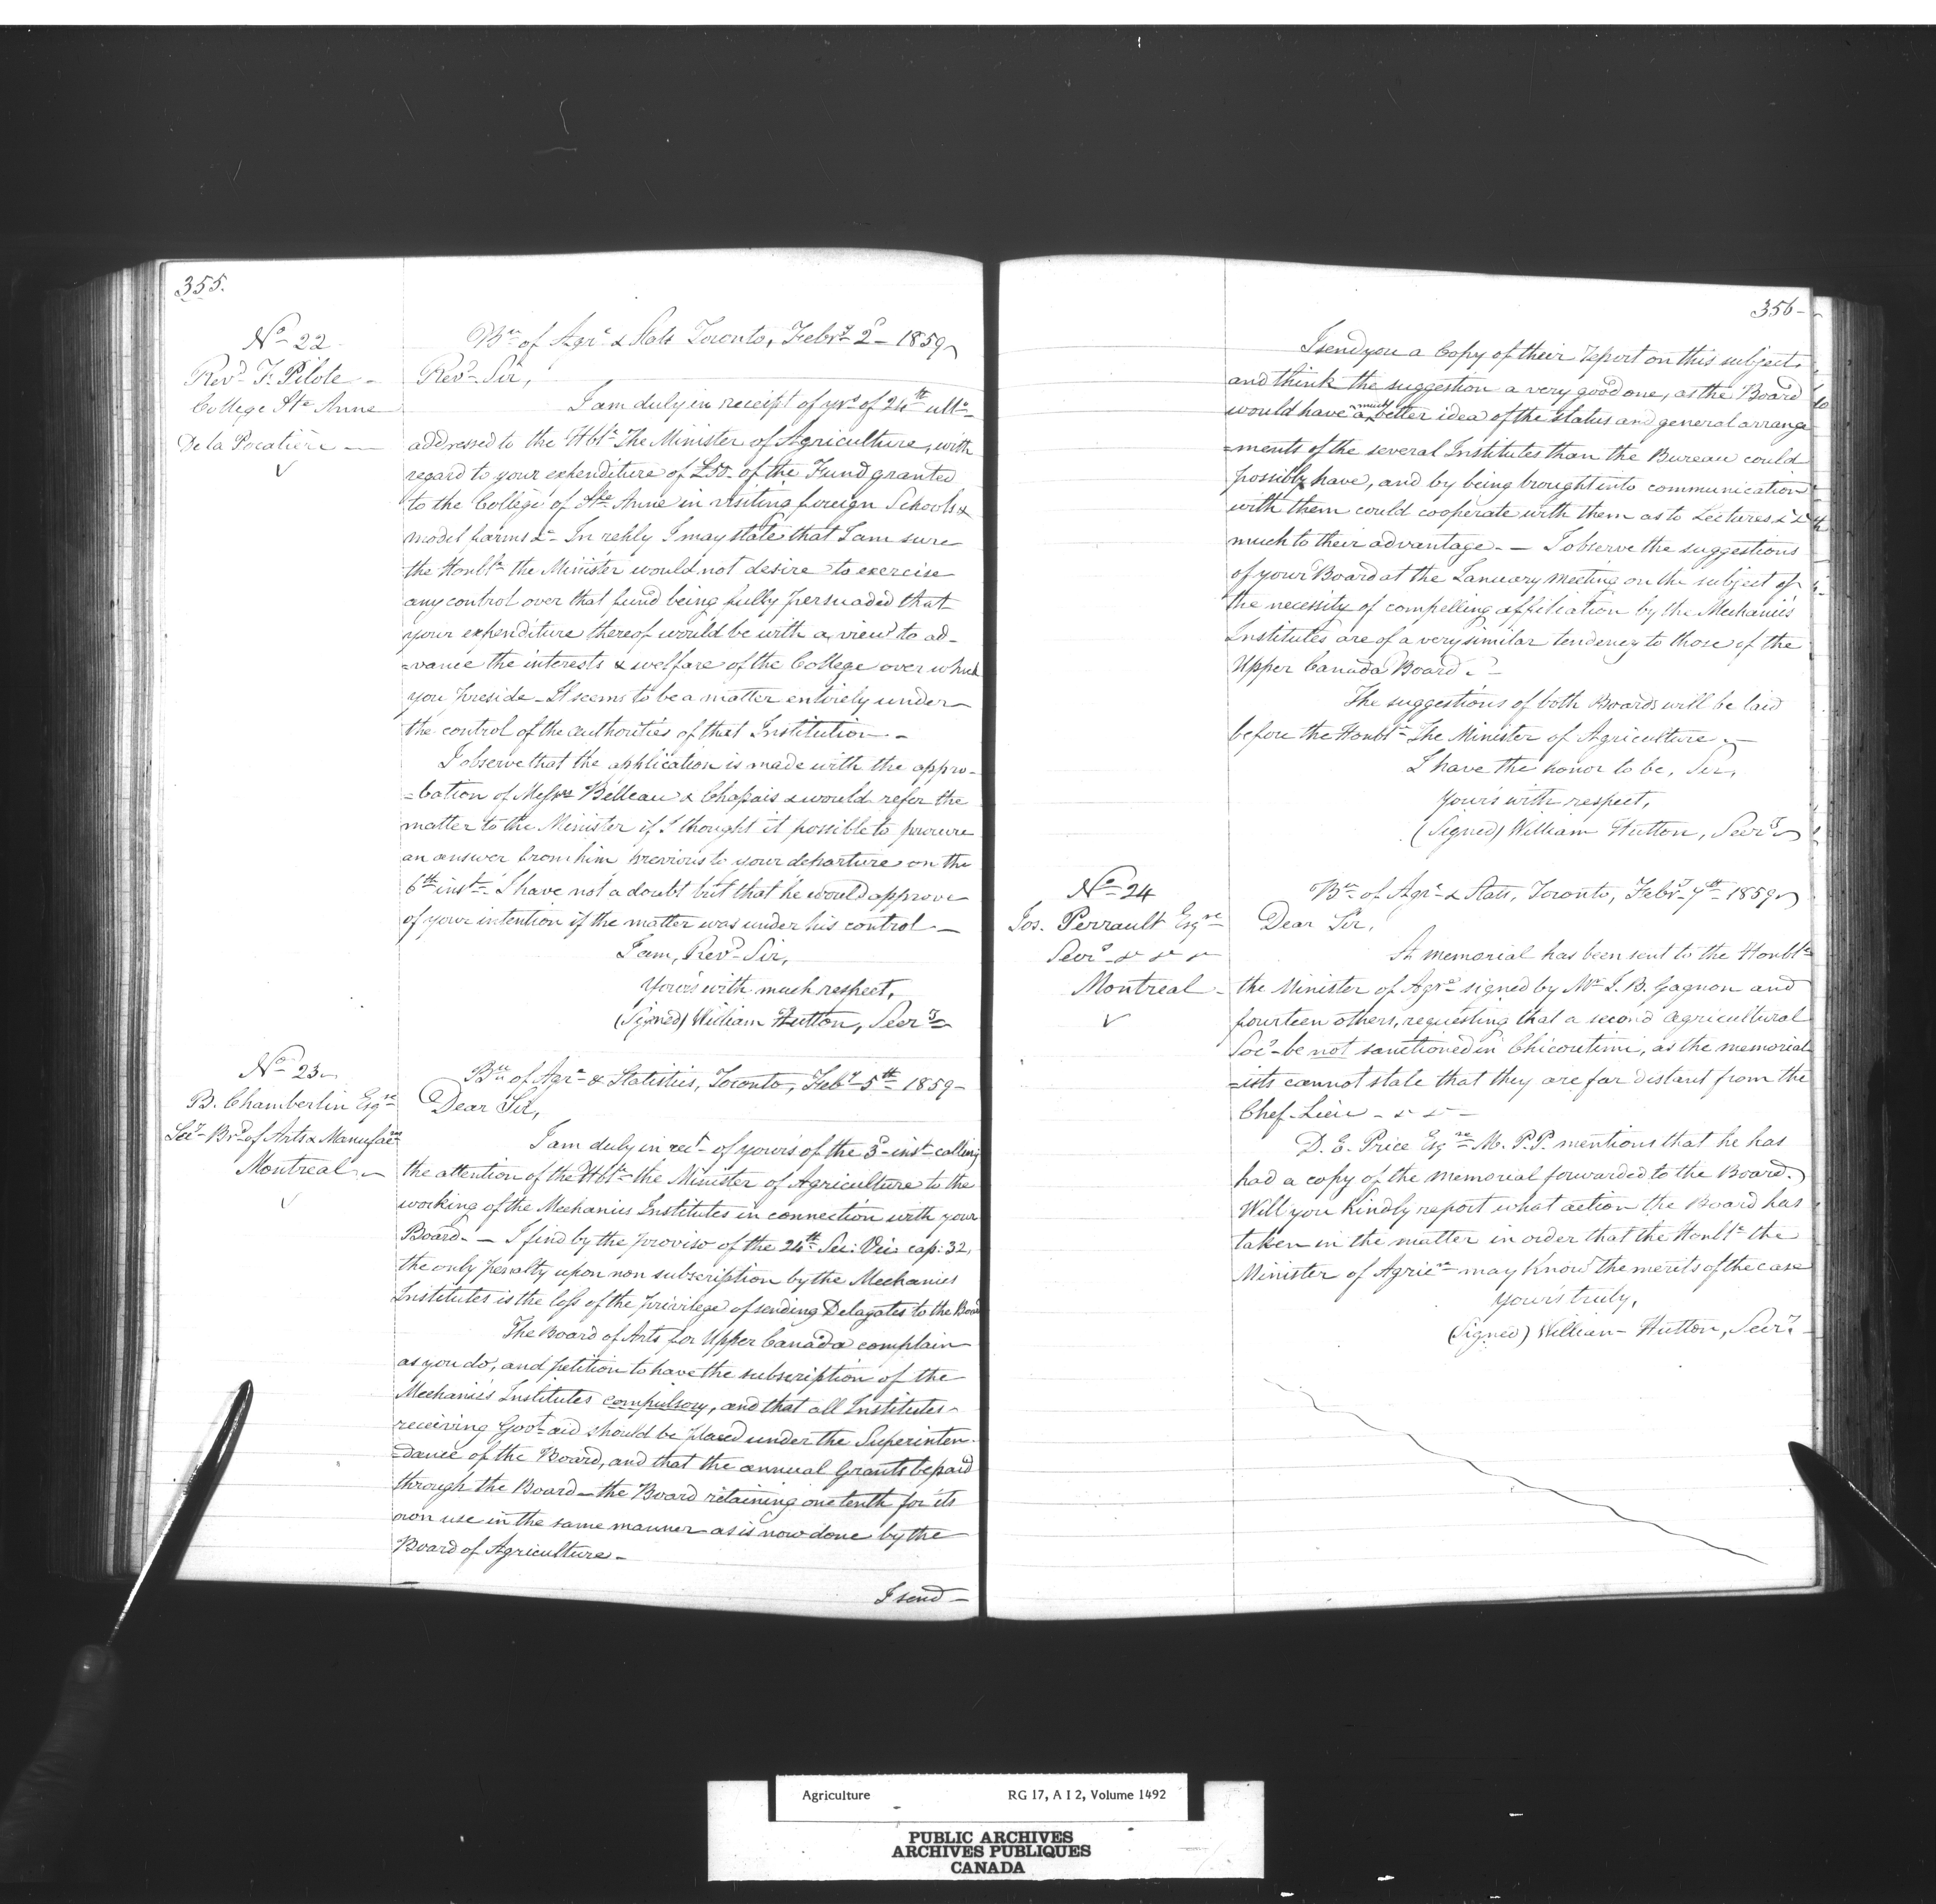 355.
No 22
Revd F. Pilote
College Ste Anne
De la Pocatiere
Bu of Agre & Stats Toronto, Febry 2d 1859
Revd Sir,
I am duly in receipt of yrs of 24th ulto
addressed to the Hble The Minister of Agriculture, with
regard to your expenditure of £50 of the Fund granted
to the College of Ste Anne in visiting foreign Schools &
model farms &c In reply I may state that I am sure
the Honble the Minister would not desire to exercise
any control over that fund being fully persuaded that
your expenditure thereof would be with a view to ad-
=vance the interests & welfare of the College over which
you preside - It seems to be a matter entirely under
the control of the authorities of that Institution -
I observe that the application is made with the appro-
=bation of Messrs Belleau & Chapais & would refer the
matter to the Minister if I thought it possible to procure
an answer from him previous to your departure on the
6th inst - I have not a doubt but that he would approve
of your intention if the matter was under his control -
I am, Revd Sir,
Yours with much respect,
(Signed) William Hutton, Secry
No 23
B. Chamberlin Esqre
Secy Brd of Arts & Manufacres
Montreal
Bu of Agre & Statistics, Toronto, Feby 5th 1859
Dear Sir,
I am duly in rect of yours of the 3d inst calling
the attention of the Hble the Minister of Agriculture to the
working of the Mechanics Institutes in connection with your
Board - I find by the proviso of the 24th Sec: Vic: cap: 32,
the only penalty upon non subscription by the Mechanics
Institutes is the loss of the privilege of sending Delagates to the Board
The Board of Arts for Upper Canada complain
as you do, and petition to have the subscription of the
Mechanic's Institutes compulsory, and that all Institutes
receiving Govt aid should be placed under the Superinten-
=dance of the Board, and that the annual Grants be paid
through the Board - the Board retaining one tenth for its
own use in the same manner as is now done by the
Board of Agriculture -
I send -
356
I send you a Copy of their report on this subject
and think the suggestion a very good one, as the Board
would have a much better idea of the status and general arrange
=ments of the several Institutes than the Bureau could
possibly have, and by being brought into communication
with them could cooperate with them as to Lectures &c &c
much to their advantage. - I observe the suggestions
of your Board at the January Meeting on the subject of
the necessity of compelling affiliation by the Mechanic's
Institutes are of a very similar tendency to those of the
Upper Canada Board. -
The suggestions of both Boards will be laid
before the Honble The Minister of Agriculture
I have the honor to be, Sir,
Yours with respect,
(Signed) William Hutton, Secry
No 24
Jos. Perrault Esqre
Secry &c &c &c
Montreal
Bu of Agre & Stats, Toronto, Febry 7th 1859
Dear Sir,
A memorial has been sent to the Honble
the Minister of Agre signed by Mr J. B. Gagnon and
fourteen others, requesting that a second Agricultural
Socy be not sanctioned in Chicoutimi, as the memorial
=ists cannot state that they are far distant from the
Chef-Lieu - &c &c -
D. E. Price Esqre M.P.P. mentions that he has
had a copy of the Memorial forwarded to the Board.
Will you kindly report what action the Board has
taken in the matter in order that the Honble the
Minister of Agricre may know the merits of the case
Yours truly,
(Signed) William Hutton, Secry
Agriculture RG 17, A I 2, Volume 1492
PUBLIC ARCHIVES
ARCHIVES PUBLIQUES
CANADA